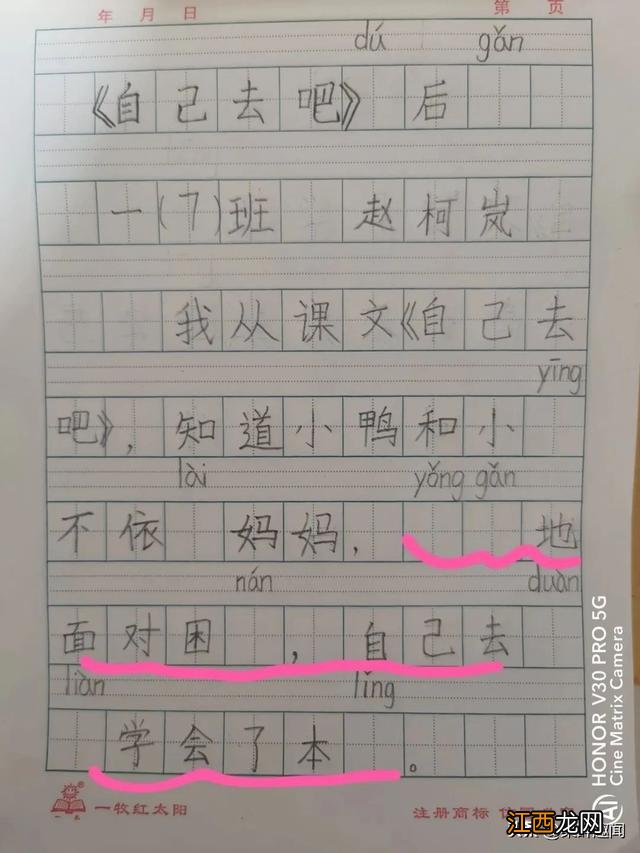 年 月 日 第 页
dú gǎn
《自己去吧》 后
一(7)班 赵柯岚
我从课文《自己去
yīng
吧》,知道小鸭和小
lài yǒng gǎn
不依 妈妈, 地
nán duàn
面对困 , 自己去
liàn lǐng
学会了本 。
一牧红太阳
注册商标
HONOR V30 PRO 5G
Cine Matrix Camera
AI
江西龙网